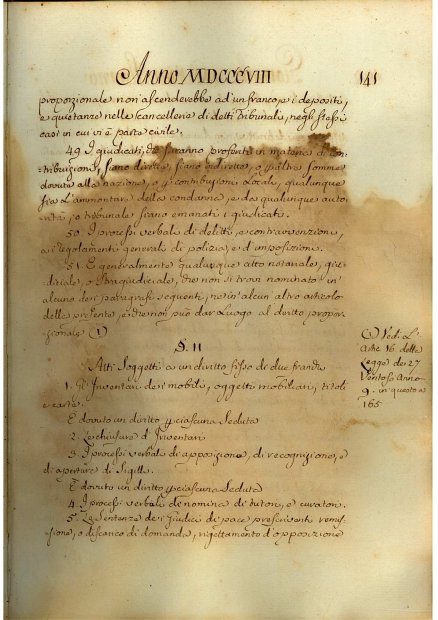 Anno MDCCCVIII
141
proporzionale non ascenderebbe ad'un franco, e i depositi,
e quietanze nelle Cancellerie di detti Tribunali, negli stessi
casi in cui vi è parte civile.
49. I giudicati, che saranno proferiti in materia di con-
tribuzioni, siano dirette, siano indirette, o p altre somme
dovute alla nazione, o p contribuzioni Locali, qualunque
sia L'ammontar della condanna, e da qualunque auto-
rità, o tribunale siano emanati i giudicati.
50. I processi verbali di delitti, e contravvenzioni,
a i regolamenti generali di polizia, e d'imposizioni.
51. E generalmente qualunque atto notariale, giu-
diziale, o stragiudiciale, che non si trovi nominato in
alcuno dei paragrafi seguenti, ne in'alcun altro articolo
della presente, e che non può dar Luogo al diritto propor-
zionale (1)
§. II
Atti Soggetti a un diritto fisso di due franchi
1. Gl'Inventari dei mobili, oggetti mobiliari, titoli
e carte.
È dovuto un diritto p ciascuna Seduta
2. Le chiusure d'Inventari
3. I processi verbali d'apposizione, di recognizione, e
di aperture di Sigilli.
È dovuto un diritto p ciascuna Seduta
4. I processi verbali de nomina di tutori, e curatori.
5. Le Sentenze dei Giudici di pace prescriventi remis-
sione, o discarico di domanda, rigettamento d'opposizione
(1) Vedi L'
Art. 16 della
Legge dei 27
Ventoso Anno
9. in questo a
165